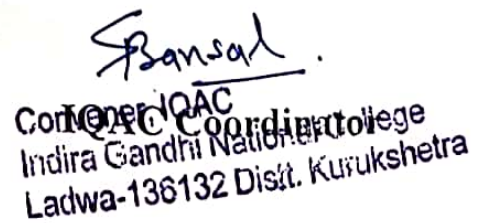 SBansal.
Convener IQAC
IQAC Coordinator
Indira Gandhi National College
Ladwa-136132 Distt. Kurukshetra